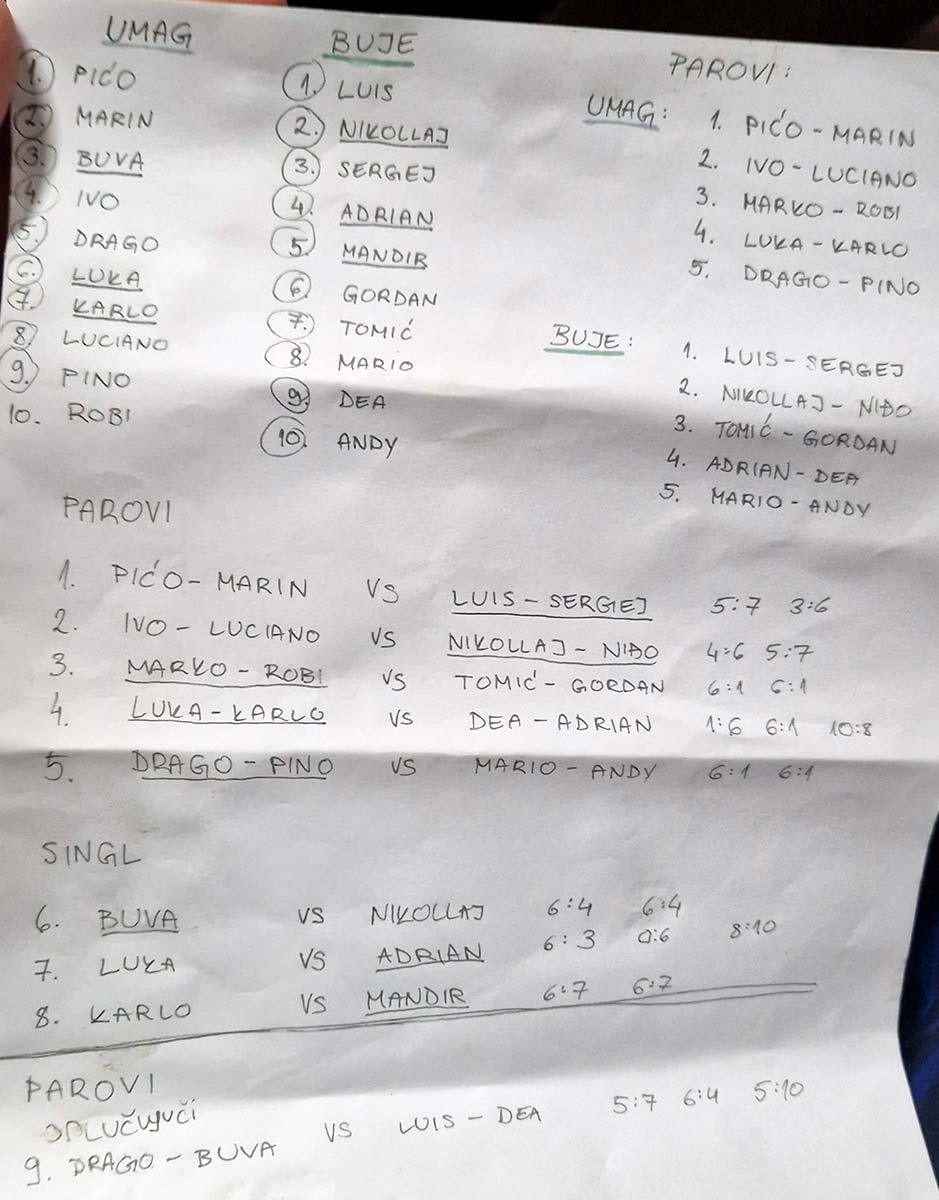 UMAG
1. PIĆO
2. MARIN
3. BUVA
4. IVO
5. DRAGO
6. LUKA
7. KARLO
8. LUCIANO
9. PINO
10. ROBI
BUJE
1. LUIS
2. NIKOLLAJ
3. SERGEJ
4. ADRIAN
5. MANDIR
6. GORDAN
7. TOMIĆ
8. MARIO
9. DEA
10. ANDY
PAROVI:
UMAG: 1. PIĆO - MARIN
2. IVO - LUCIANO
3. MARKO - ROBI
4. LUKA - KARLO
5. DRAGO - PINO
BUJE: 1. LUIS - SERGEJ
2. NIKOLLAJ - NIĐO
3. TOMIĆ - GORDAN
4. ADRIAN - DEA
5. MARIO - ANDY
PAROVI
1. PIĆO - MARIN VS LUIS - SERGEJ 5:7 3:6
2. IVO - LUCIANO VS NIKOLLAJ - NIĐO 4:6 5:7
3. MARKO - ROBI VS TOMIĆ - GORDAN 6:1 6:1
4. LUKA - KARLO VS DEA - ADRIAN 1:6 6:1 10:8
5. DRAGO - PINO VS MARIO - ANDY 6:1 6:1
SINGL
6. BUVA VS NIKOLLAJ 6:4 6:4
7. LUKA VS ADRIAN 6:3 0:6 8:10
8. KARLO VS MANDIR 6:7 6:7
PAROVI
ODLUČUJUČI
9. DRAGO - BUVA VS LUIS - DEA 5:7 6:4 5:10